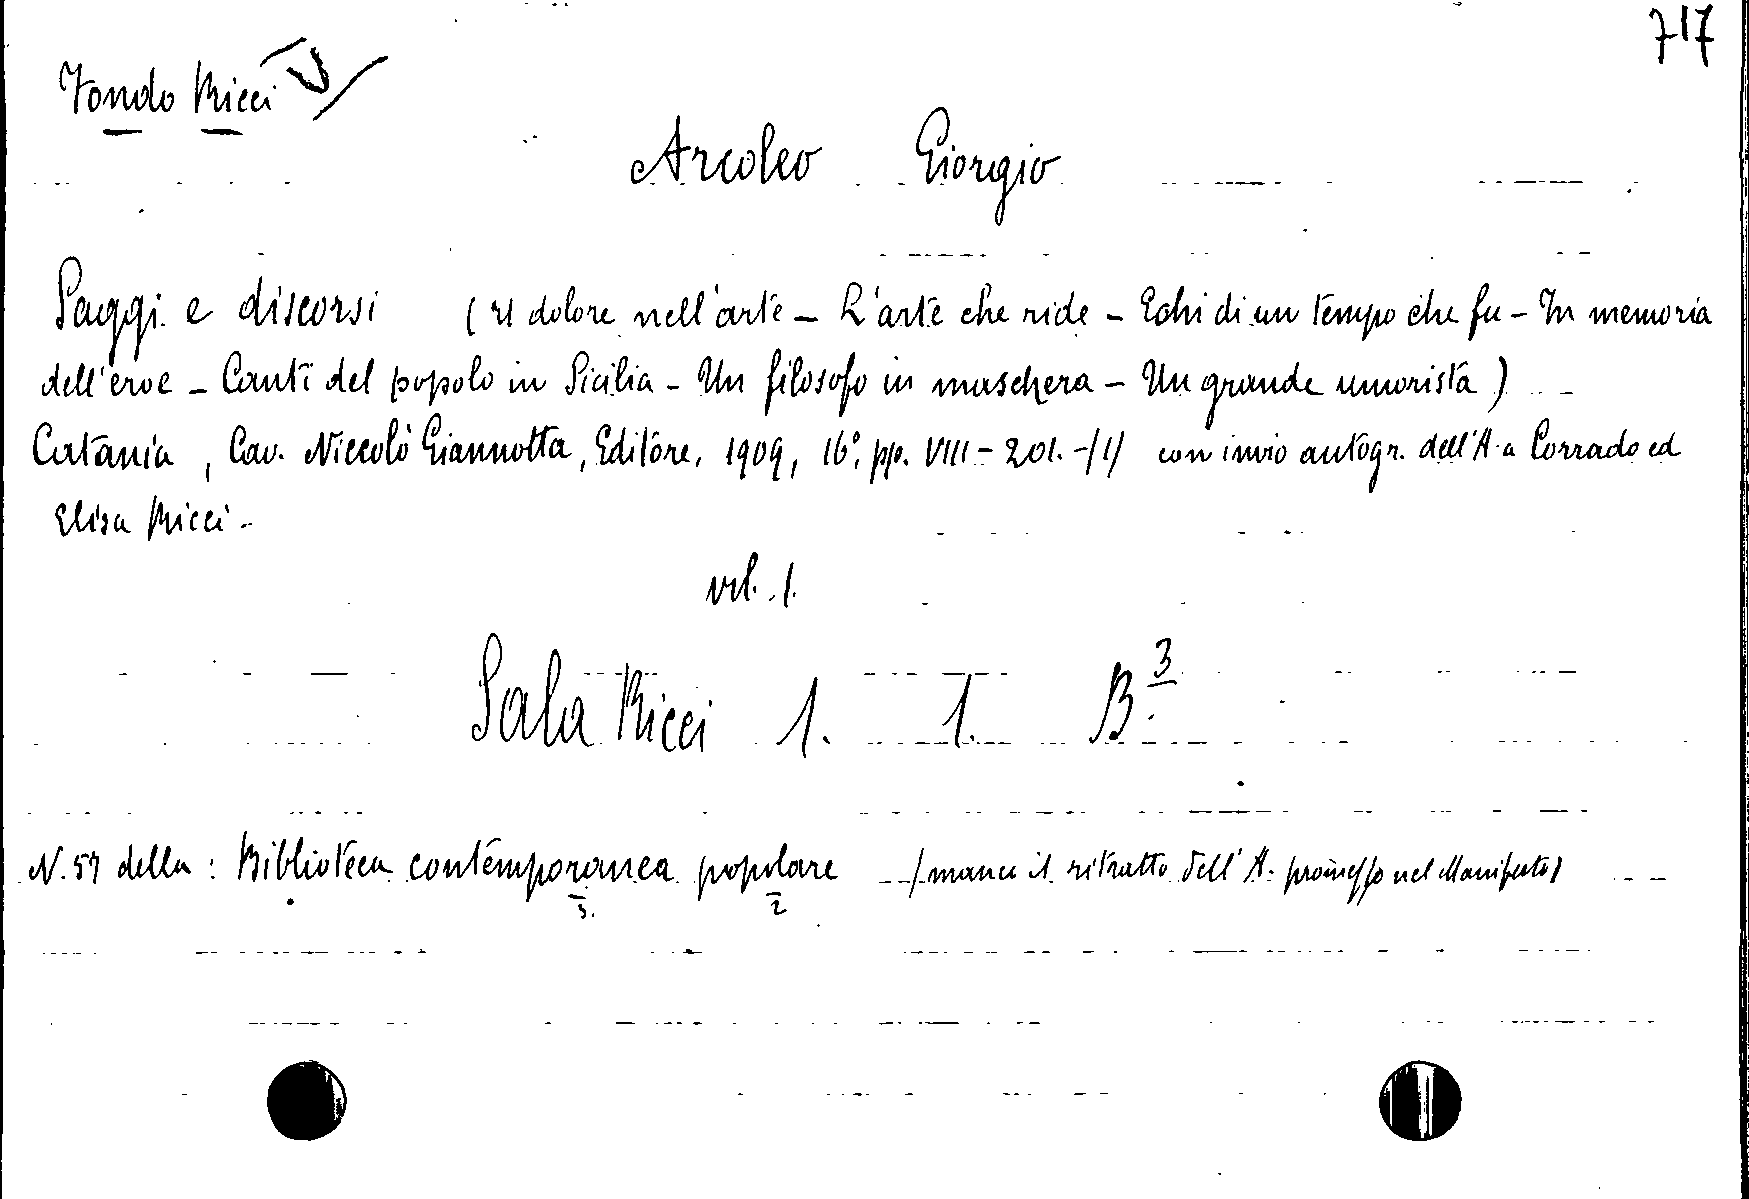 717
Fondo Ricci
Arcoleo Giorgio
Saggi e discorsi (Il dolore nell'arte - L'arte che ride - Echi di un tempo che fu - In memoria
dell'eroe - Canti del popolo in Sicilia - Un filosofo in maschera - Un grande umorista)
Catania, Cav. Niccolò Giannotta, Editore, 1909, 16°, pp. VIII - 201. - (1) con invio autogr. dell'A. a Corrado ed
Elisa Ricci -
vol. 1.
Sala Ricci 1. 1. B.3
N. 57 della : Biblioteca contemporanea popolare (manca il ritratto dell'A. promesso nel Manifesto)
3. 2